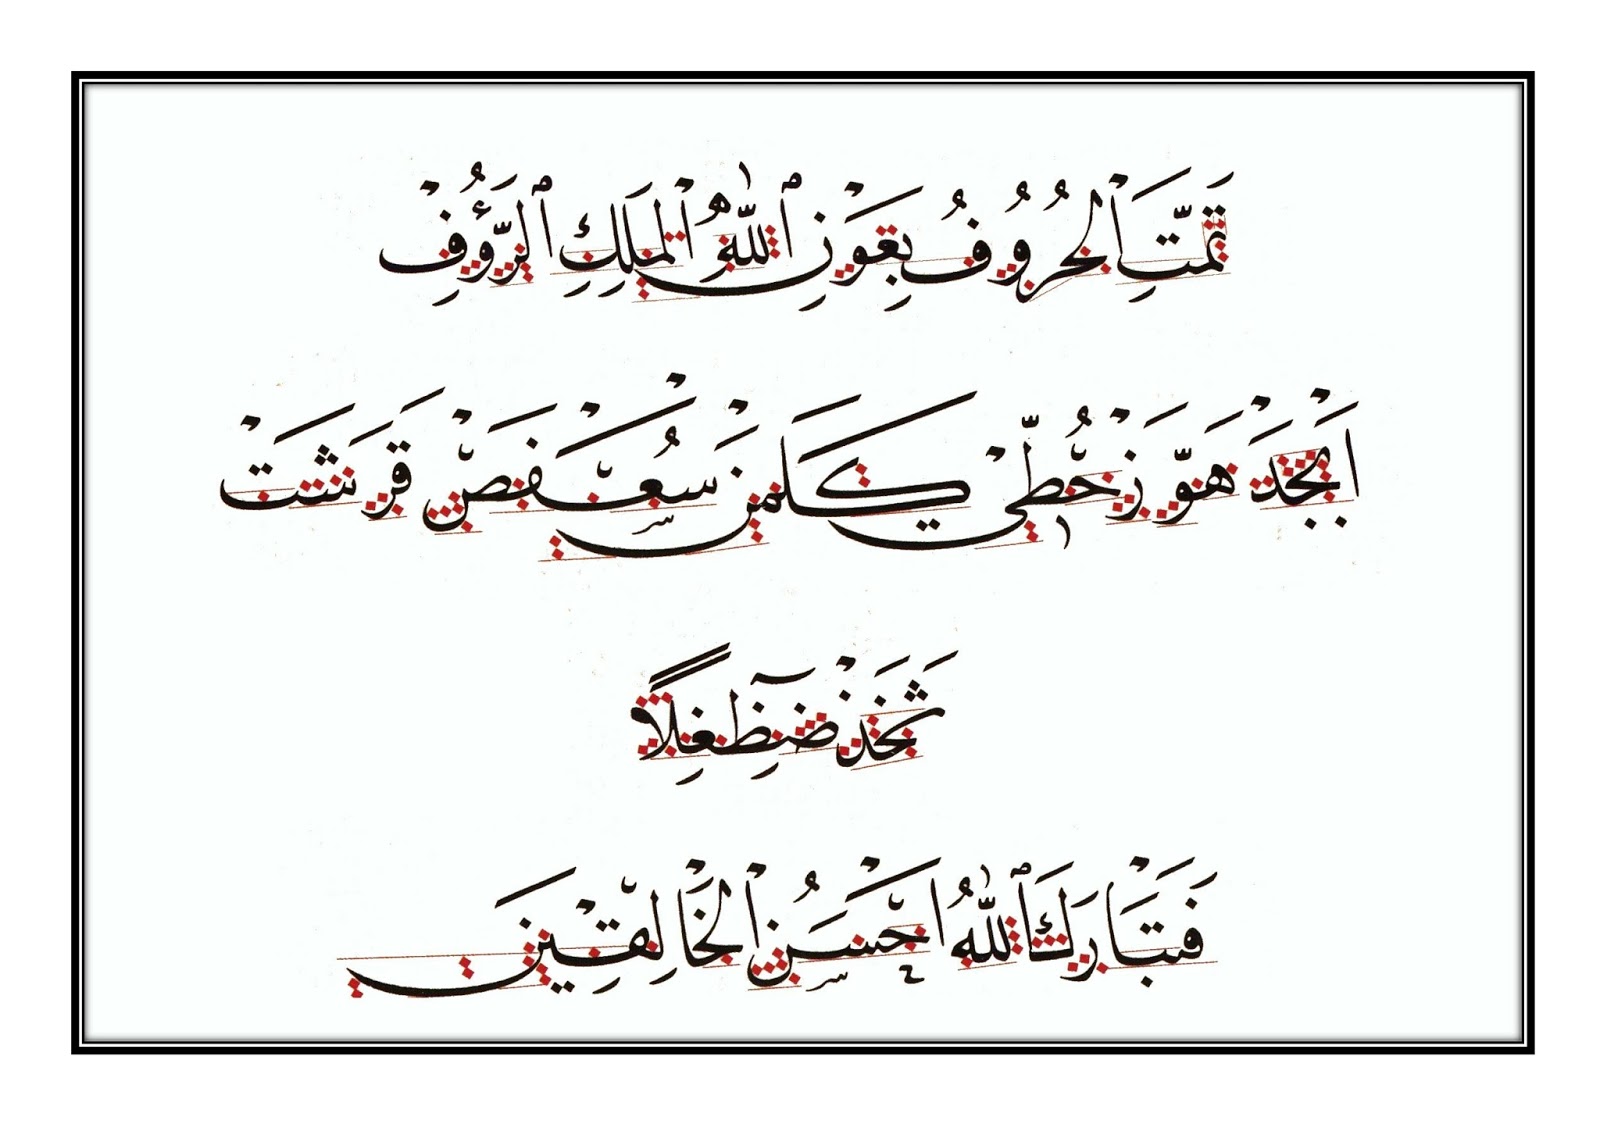 تَمَّتِ الْحُرُوفُ بِعَوْنِ اللّٰهِ الْمَلِكِ الرَّؤُفِ
اَبْجَدْ هَوَّزْ حُطِّي كَلَمَنْ سَعْفَصْ قَرَشَتْ
ثَخَذْ ضَظِغِلاً
فَتَبَارَكَ اللّٰهُ اَحْسَنُ الْخَالِقِينَ